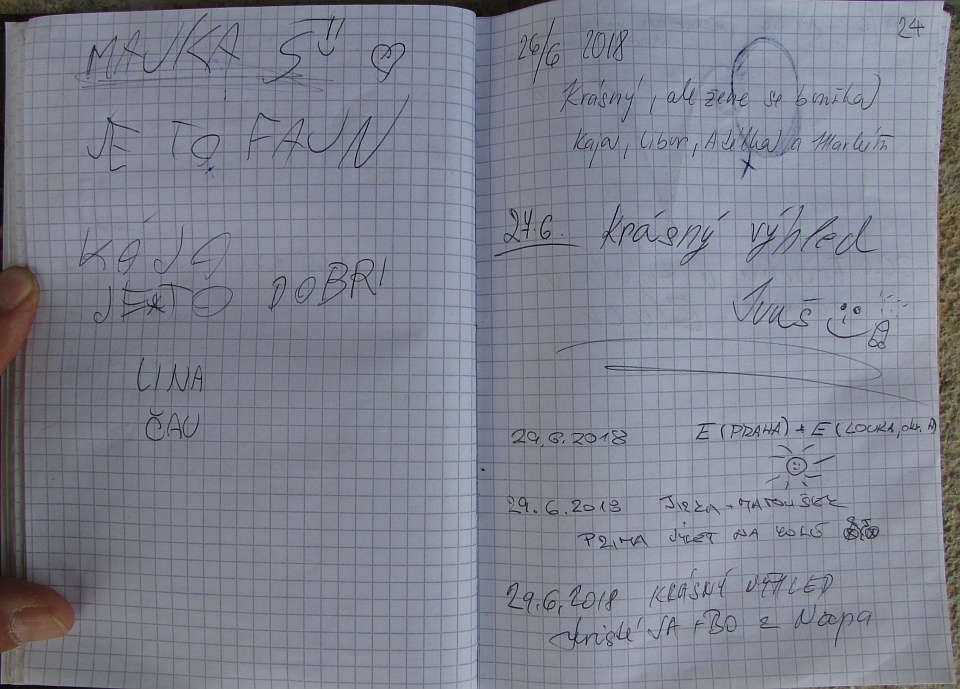 MAJKA 5
JE TO FAJN
KÁJA
JE TO DOBRÝ
LINA
ČAU
24
26/6 2018
Krásný, ale žene se bouřka
Kája, Libor, Adélka a Markét
27.6. Krásný výhled
29.6.2018 E (PRAHA) + E (LOUKA, okr.
29.6.2018 JIRKA + MATOUŠEK
PRIMA VÝLET NA KOLE
29.6.2018 KRÁSNÝ VÝHLED